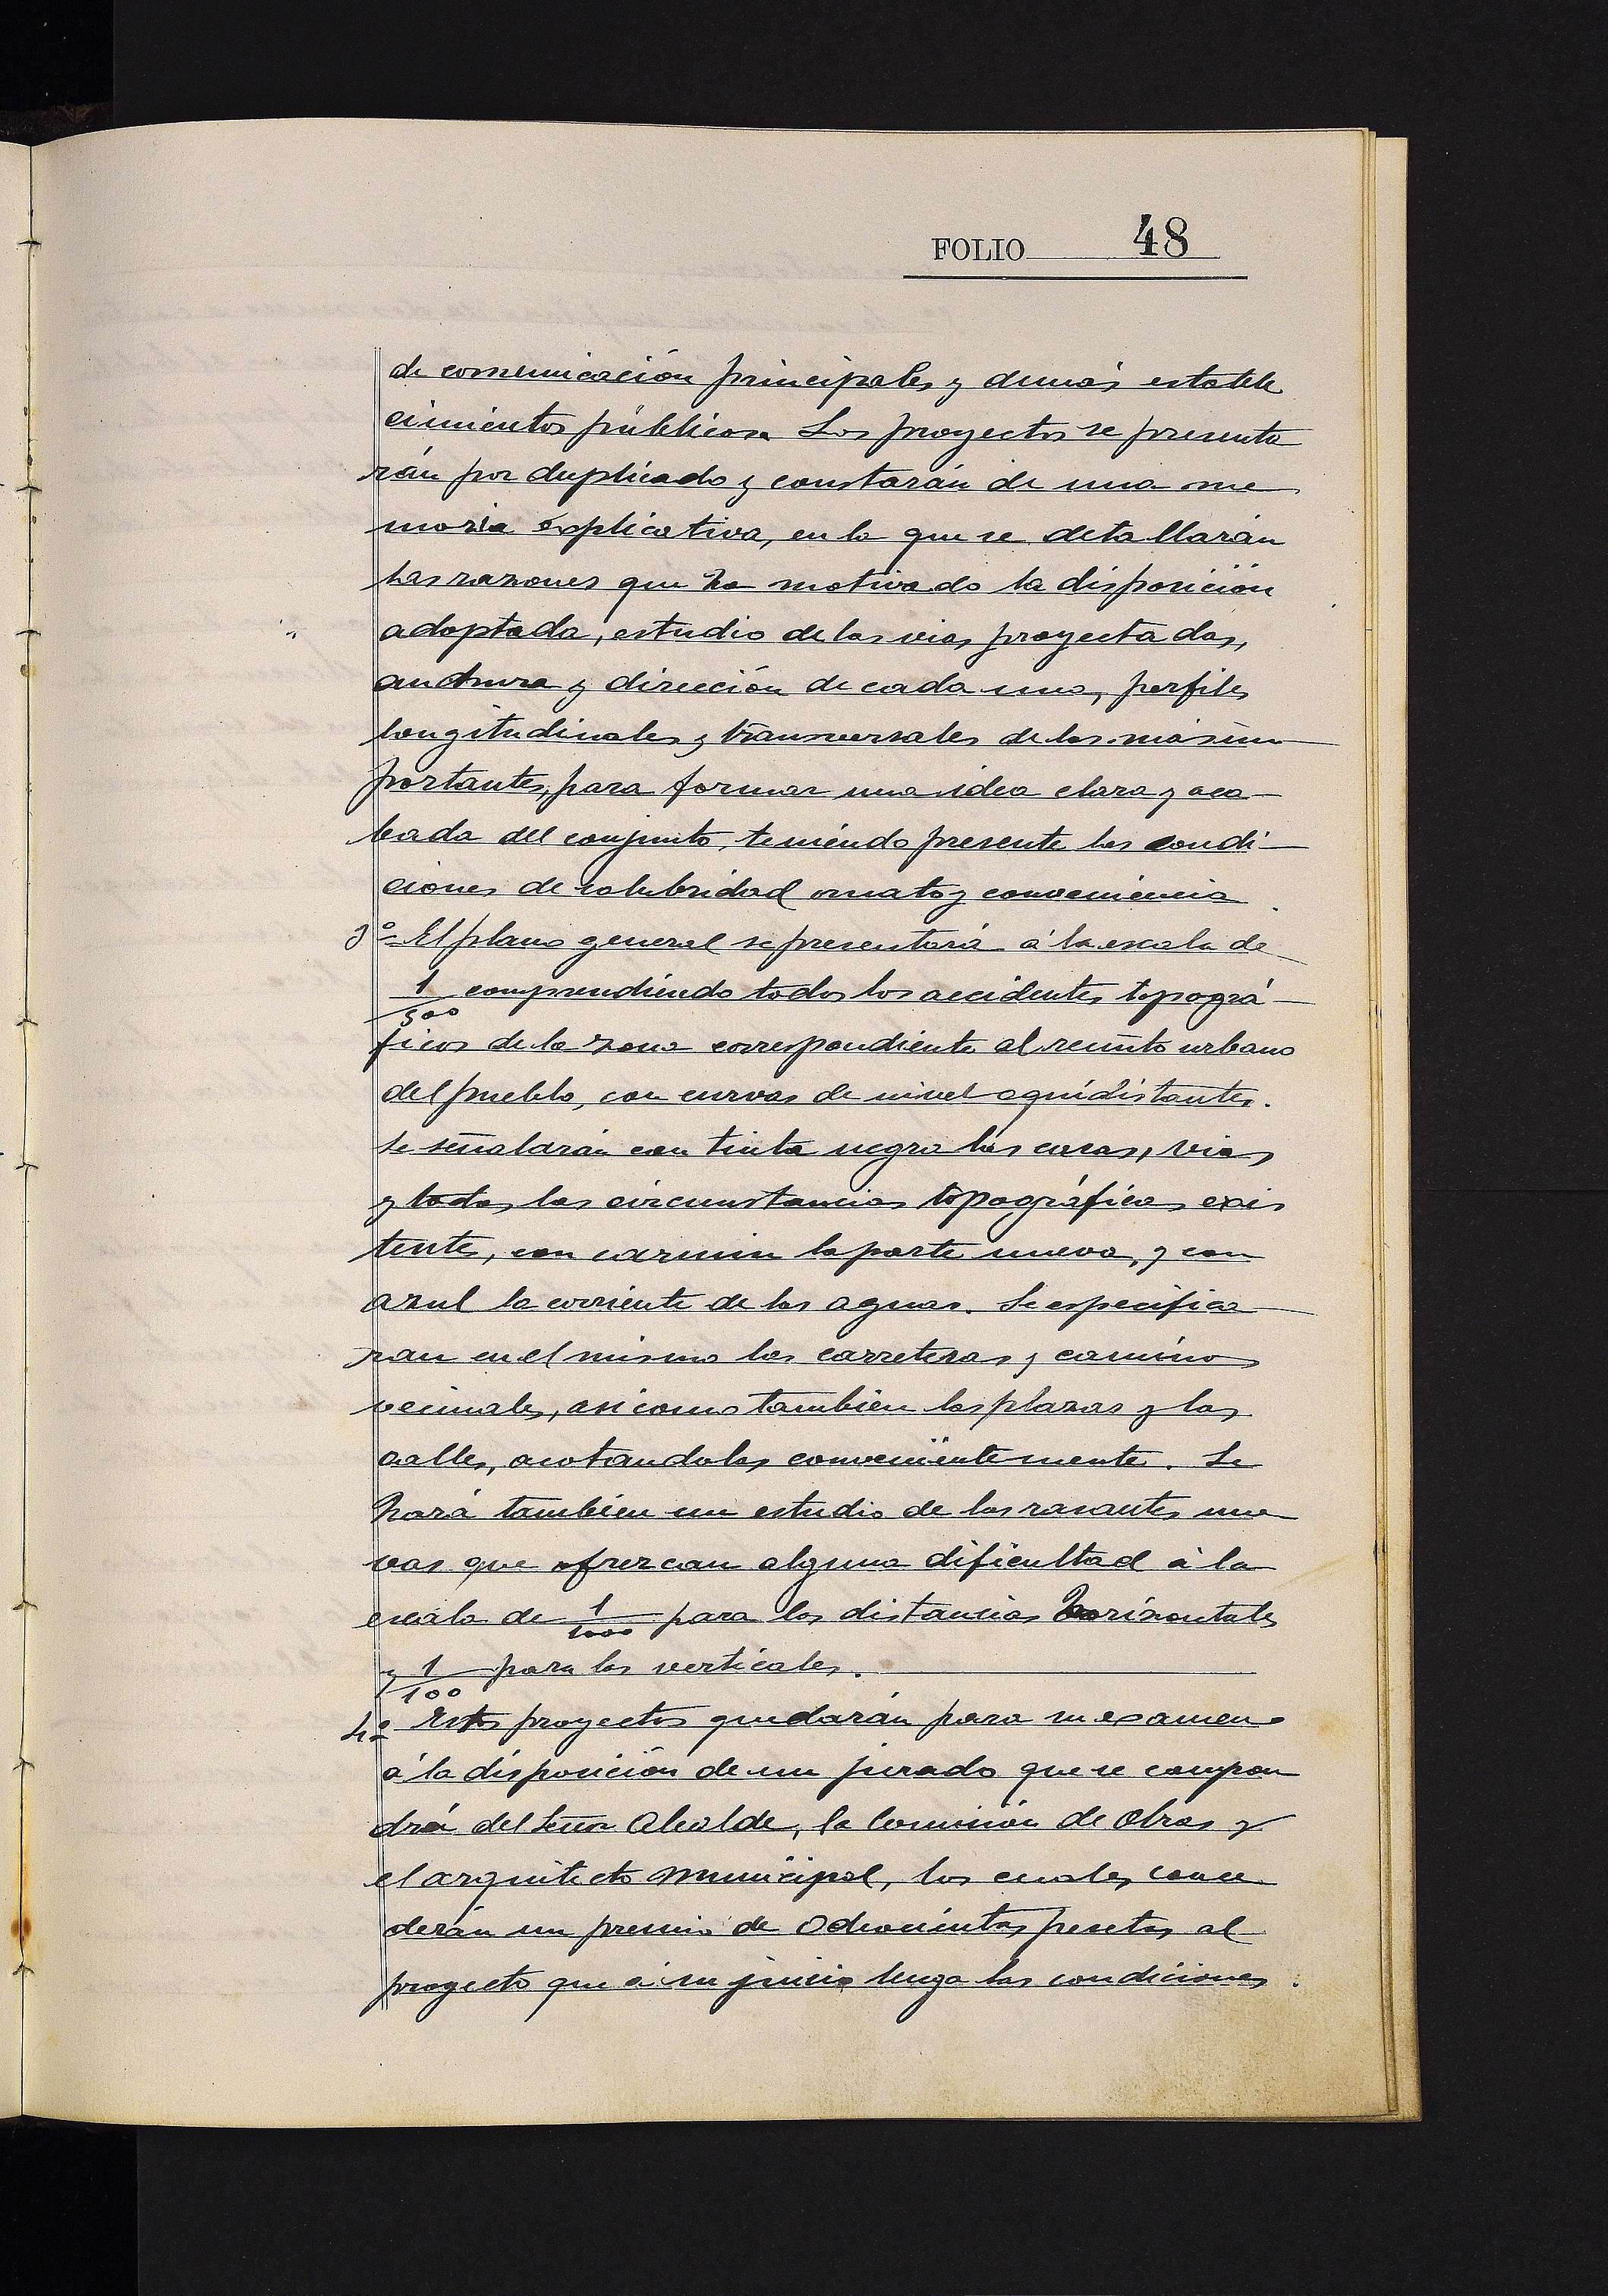 FOLIO 48
de comunicación principales y demás estable
cimientos públicos. Los proyectos se presenta
rán por duplicado y constarán de una me
moria explicativa, en la que se detallarán
las razones que ha motivado la disposición
adoptada, estudio de las vias proyectadas,
anchura y dirección de cada una, perfiles
longitudinales y transversales de las más im
portantes, para formar una idea clara y aca-
bada del conjunto, teniendo presente las condi-
ciones de salubridad ornato y conveniencia.
3º El plano general se presentará á la escala de
1/500 comprendiendo todos los accidentes topográ-
ficos de la zona correspondiente al recinto urbano
del pueblo, con curvas de nivel equidistantes.
Se señalarán con tinta negra las casas, vias
y todas las circunstancias topográficas exis
tente, con carmin la parte nueva, y con
azul la corriente de las aguas. Se especifica
ran en el mismo las carreteras y caminos
vecinales, asi como tambien las plazas y las
calles, acotandolas convenientemente. Se
hará tambien un estudio de las rasantes nue
vas que ofrezcan alguna dificultad á la
escala de 1/1000 para las distancias horizontales
y 1/100 para las verticales.
4º Estos proyectos quedarán para su examen
á la disposición de un jurado que se compon
drá del Señor Alcalde, la Comisión de Obras y
el arquitecto municipal, los cuales conce
derán un premio de Ochocientas pesetas al
proyecto que á su juicio tenga las condiciones